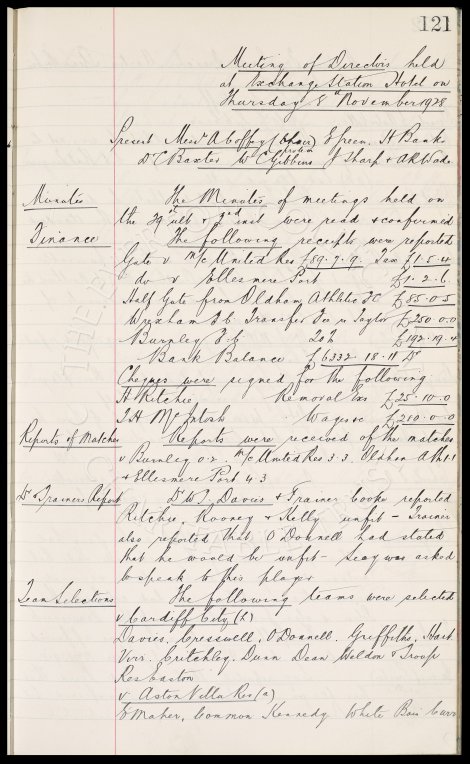 121
Meeting of Directors held
at Exchange Station Hotel on
Thursday 8th November 1928
Present Messrs A Coffey (Chair) E Green. H Banks
Dr C Baxter W C Gibbins J Sharp & A R Wade
Minutes The Minutes of meetings held on
the 29th ult & 2nd inst were read & confirmed
Finance The following receipts were reported
Gate v M/c United Res £89.7.9. Tax £1.5.4
do v Ellesmere Port £1.2.6.
Half Gate from Oldham Athletic FC £85.0.5
Wrexham F.C. Transfer Fee re Taylor £250.0.0
Burnley F.C. £192.19.4
Bank Balance £6332.18.11 Dr
Cheques were signed for the following
H Ritchie Removal £25.10.0
T.H McIntosh Wages &c £210.0.0
Reports of Matches Reports were received of the matches
v Burnley 0.2. M/c United Res 3.3. Oldham Ath 1.1
& Ellesmere Port 4.3
Dr & Trainers Report Dr W J Davies & Trainer Cooke reported
Ritchie, Rooney & Kelly unfit – Trainer
also reported that O'Donnell had stated
that he would be unfit – Secy was asked
to speak to this player
Team Selections The following teams were selected
v Cardiff City (h)
Davies, Cresswell, O'Donnell. Griffiths, Hart
Virr. Critchley, Dunn Dean Weldon & Troup
Res Easton
v Aston Villa Res (a)
Common Kennedy White Bain Curr